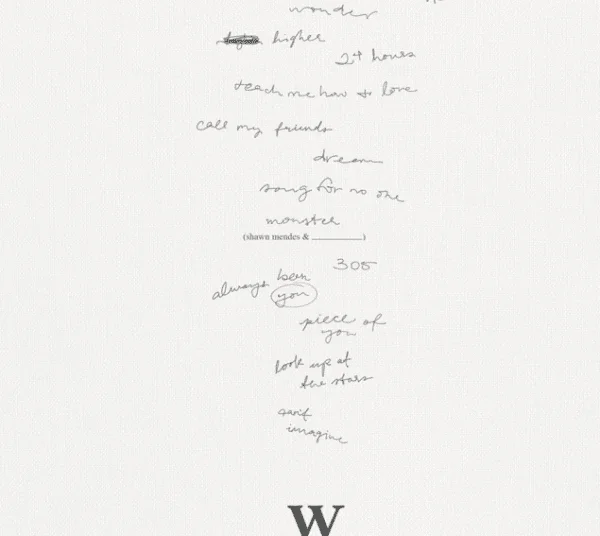 wonder
higher
24 hours
teach me how to love
call my friends
dream
song for no one
monster
(shawn mendes & ____________)
305
always been
you
piece of
you
look up at
the stars
can't
imagine
W